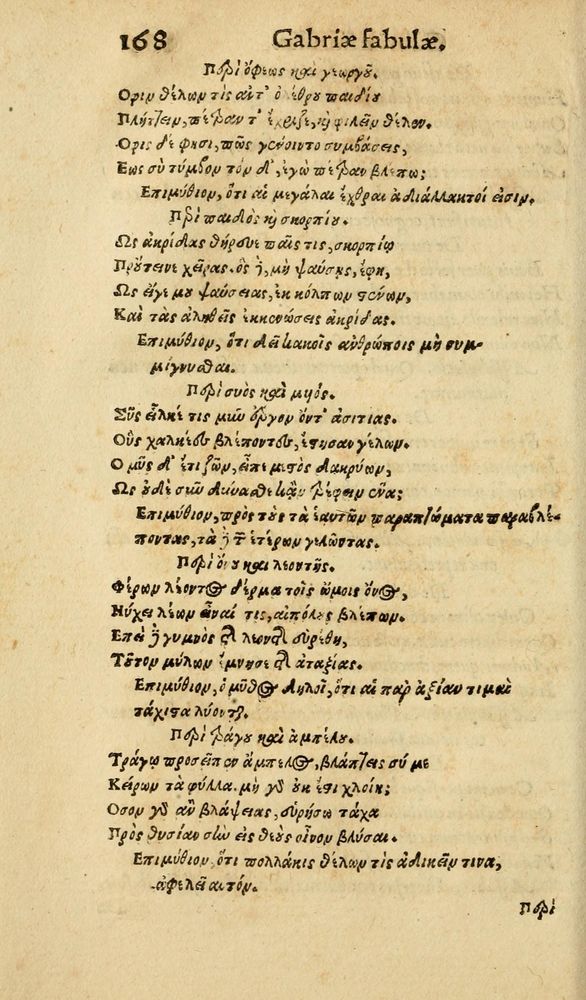 168 Gabriæ fabulæ.
Περὶ ὄφεως καὶ γεωργοῦ.
Οφιν θέλων τὶς ἀντ' ὀλέθρου παιδίου
Πλήττειν, πέτραν τ' ἔχριζε, καὶ φιλεῖν θέλον.
Οφις δέ φησι, πῶς γένοιντο συμβάσεις,
Εως σὺ τύμβον τόν δ', ἐγὼ πέτραν βλέπω;
Επιμύθιον, ὅτι αἱ μεγάλαι ἔχθραι ἀδιάλλακτοί εἰσιν.
Περὶ παιδὸς καὶ σκορπίου.
Ως ἀκρίδας θήρευε παῖς τις, σκορπίῳ
Πρότεινε χεῖρας. ὃς δὲ, μὴ ψαύσῃς, ἔφη,
Ως εἴγε μου ψαύσειας, ἐκ κόλπων τένων,
Καὶ τὰς ἀληθεῖς ἐκκενώσεις ἀκρίδας.
Επιμύθιον, ὅτι δεῖ κακοῖς ἀνθρώποις μὴ συμ-
μίγνυσθαι.
Περὶ συὸς καὶ μυός.
Σῦς εἷλκέ τις μῦν ὄργον ὄντ' ἀσιτίας.
Οὓς χαλκέως βλέποντες, ἔστησαν γέλων.
Ο μῦς δ' ἔτι ζῶν, εἶπε μεστὸς δακρύων,
Ως οὐδὲ σμῦν δύνασθε κἂν τρέφειν ἕνα;
Επιμύθιον, πρὸς τοὺς τὰ ἑαυτῶν παραπτώματα παραβλέ-
ποντας, τὰ δὲ τῶν ἑτέρων γελῶντας.
Περὶ ὄνου καὶ λεοντῆς.
Φέρων λέοντος δέρμα τοῖς ὤμοις ὄνος,
Ηὔχει λέων εἶναί τις, αἰπόλους βλέπων.
Επεὶ δὲ γυμνὸς τῆς λεοντῆς εὑρέθη,
Τοῦτον μύλων ἔμνησε τῆς ἀταξίας.
Επιμύθιον, ὁ μῦθος δηλοῖ, ὅτι αἱ παρ' ἀξίαν τιμαὶ
τάχιστα λύονται.
Περὶ τράγου καὶ ἀμπέλου.
Τράγῳ προσεῖπεν ἄμπελος, βλάπτεις σύ με
Κείρων τὰ φύλλα. μὴ γὰρ οὐκ ἔστι χλόη;
Οσον γὰρ ἂν βλάψειας, εὑρήσω τάχα
Πρὸς θυσίαν σὴν εἰς θεοὺς οἶνον βλύσαι.
Επιμύθιον, ὅτι πολλάκις θέλων τὶς ἀδικεῖν τινα,
ὠφελεῖ αὐτόν.
Περὶ